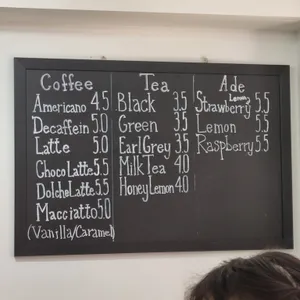 Coffee
Americano 4.5
Decaffein 5.0
Latte 5.0
Choco Latte 5.5
Dolche Latte 5.5
Macciatto 5.0
(Vanilla/Caramel)
Tea
Black 3.5
Green 3.5
Earl Grey 3.5
Milk Tea 4.0
Honey Lemon 4.0
Ade
Strawberry Lemon 5.5
Lemon 5.5
Raspberry 5.5